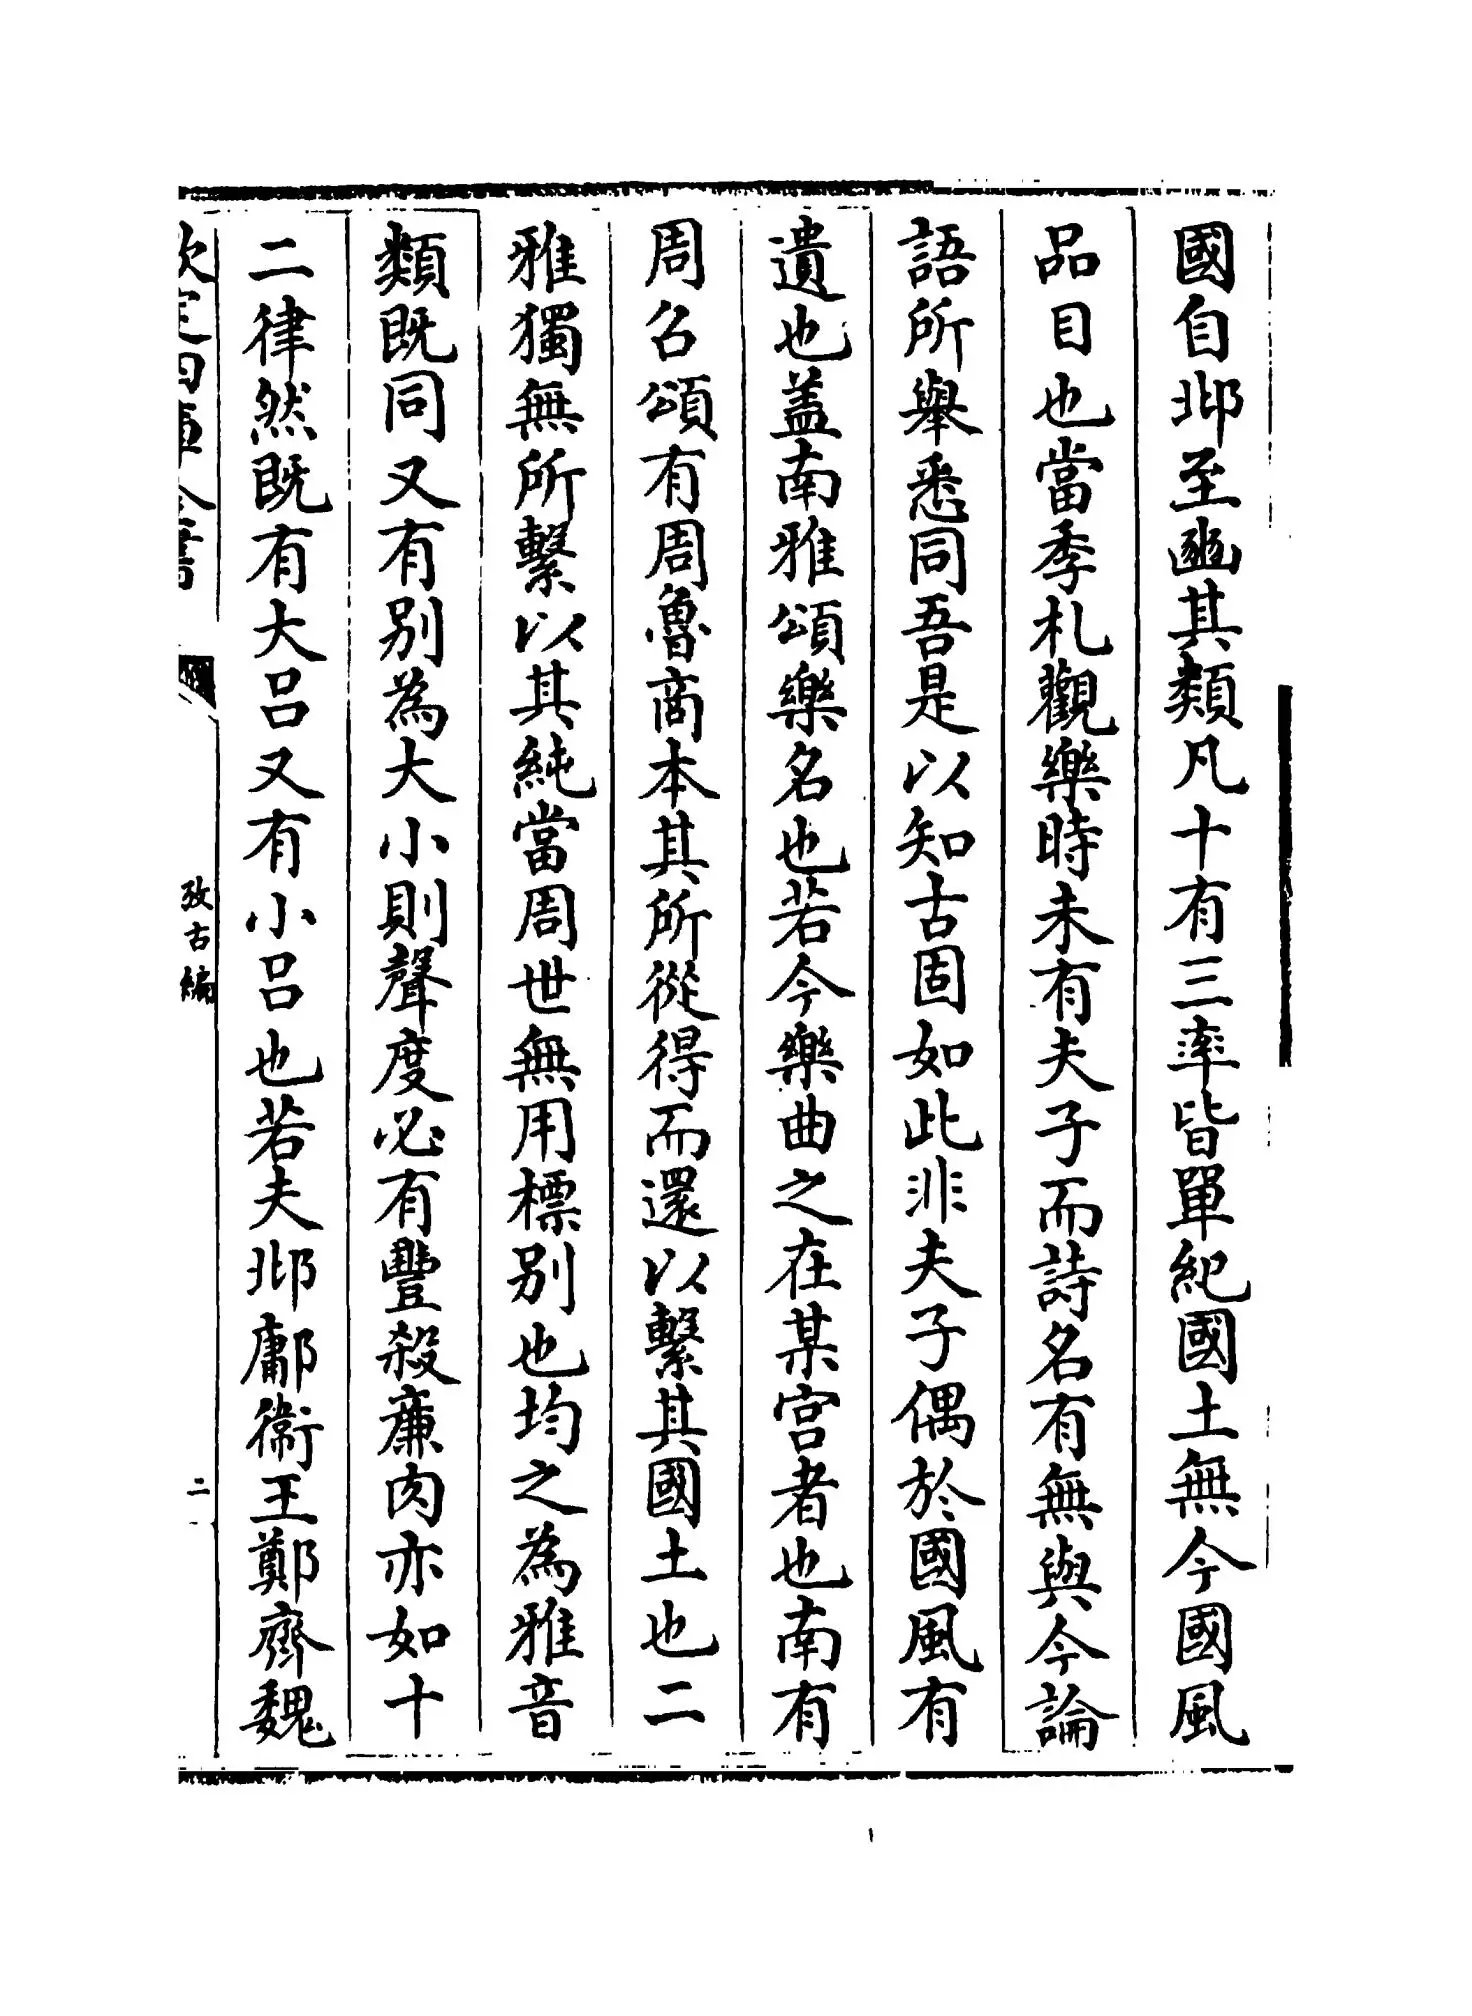 國自邶至豳其類凡十有三率皆單紀國土無今國風
品目也當季札觀樂時未有夫子而詩名有無與今論
語所舉悉同吾是以知古固如此非夫子偶於國風有
遺也盖南雅頌樂名也若今樂曲之在某宫者也南有
周召頌有周魯商本其所從得而還以繫其國土也二
雅獨無所繫以其純當周世無用標别也均之為雅音
類既同又有别為大小則聲度必有豐殺亷肉亦如十
二律然既有大吕又有小吕也若夫邶鄘衛王鄭齊魏
欽定四庫全書
攷古編
二